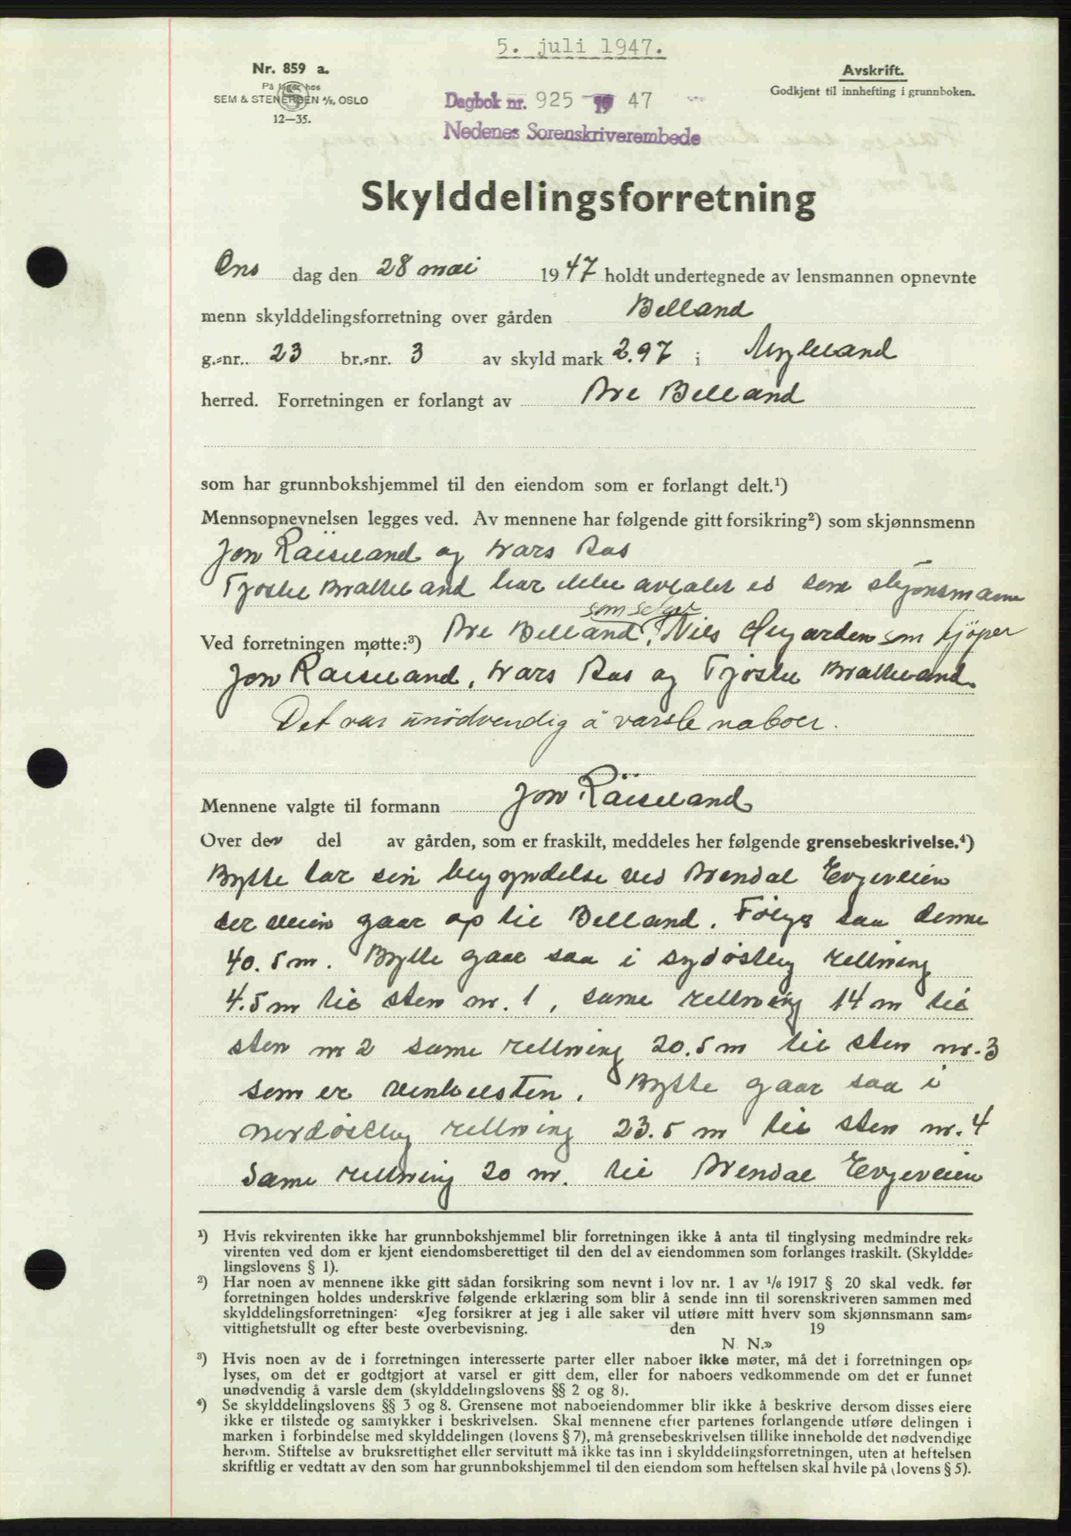 5. juli 1947.
Nr. 859 a.
På lager hos
SEM & STENERSEN A/S, OSLO
12—35.
Dagbok nr. 925 19 47
Nedenes Sorenskriverembede
Avskrift.
Godkjent til innhefting i grunnboken.
Skylddelingsforretning
Ons dag den 28 mai 1947 holdt undertegnede av lensmannen opnevnte
menn skylddelingsforretning over gården Belland
g.-nr. 23 br.-nr. 3 av skyld mark 2.97 i Mykland
herred. Forretningen er forlangt av Are Belland
som har grunnbokshjemmel til den eiendom som er forlangt delt.¹)
Mennsopnevnelsen legges ved. Av mennene har følgende gitt forsikring²) som skjønnsmenn
Jon Räiseland og Lars Aas
Tjøstel Bratteland har ikke avlagt ed som skjønsmann
som selger
Ved forretningen møtte:³) Are Belland, Nils som kjøper
Jon Raiseland, Lars Aas og Tjøstel Bratteland.
Det var unødvendig å varsle naboer.
Mennene valgte til formann Jon Räiseland
Over den del av gården, som er fraskilt, meddeles her følgende grensebeskrivelse.⁴)
Bytte tar sin begyndelse ved Arendal Evjeveien
der veien gaar op til Belland. Følger saa denne
40.5 m. Bytte gaar saa i sydøstlig retning
4.5 m til sten nr. 1, same retning 14 m til
sten nr 2 same retning 20.5 m til sten nr. 3
som er vinkelsten. Bytte gaar saa i
nordøstlig retning 23.5 m til sten nr. 4
same retning 20 m. til Arendal Evjeveien
¹) Hvis rekvirenten ikke har grunnbokshjemmel blir forretningen ikke å anta til tinglysing medmindre rek-
virenten ved dom er kjent eiendomsberettiget til den del av eiendommen som forlanges fraskilt. (Skyldde-
lingslovens § 1).
²) Har noen av mennene ikke gitt sådan forsikring som nevnt i lov nr. 1 av 1/6 1917 § 20 skal vedk. før
forretningen holdes underskrive følgende erklæring som blir å sende inn til sorenskriveren sammen med
skylddelingsforretningen: «Jeg forsikrer at jeg i alle saker vil utføre mitt hverv som skjønnsmann sam-
vittighetsfullt og efter beste overbevisning. den 19
N. N.»
³) Hvis noen av de i forretningen interesserte parter eller naboer ikke møter, må det i forretningen op-
lyses, om det er godtgjort at varsel er gitt dem, eller for naboers vedkommende om det er funnet
unødvendig å varsle dem (skylddelingslovens §§ 2 og 8).
⁴) Se skylddelingslovens §§ 3 og 8. Grensene mot naboeiendommer blir ikke å beskrive dersom disses eiere
ikke er tilstede og samtykker i beskrivelsen. Skal mennene efter partenes forlangende utføre delingen i
marken i forbindelse med skylddelingen (lovens § 7), må grensebeskrivelsen tillike inneholde det nødvendige
herom. Stiftelse av bruksrettighet eller servitutt må ikke tas inn i skylddelingsforretningen, uten at heftelsen
skriftlig er vedtatt av den som har grunnbokshjemmel til den eiendom som heftelsen skal hvile på (lovens § 5).